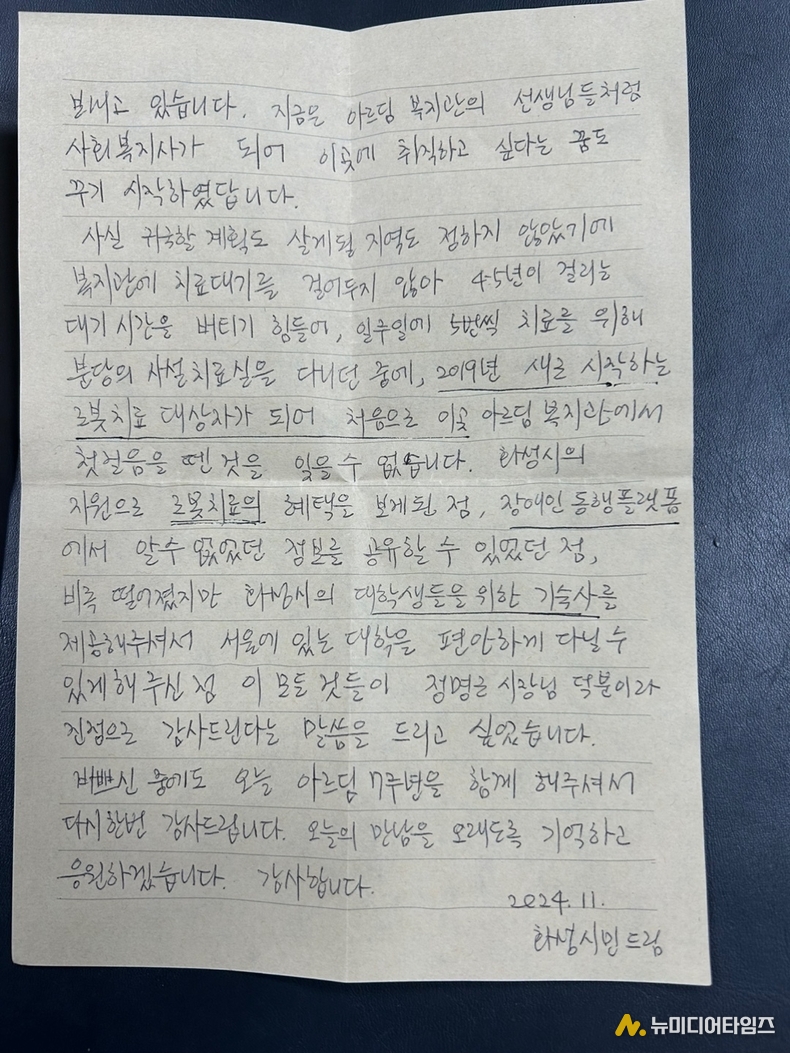 보내고 있습니다. 지금은 아르딤 복지관의 선생님들처럼
사회복지사가 되어 이곳에 취직하고 싶다는 꿈도
꾸기 시작하였답니다.
사실 귀국할 계획도 살게될 지역도 정하지 않았기에
복지관에 치료대기를 걸어두지 않아 4-5년이 걸리는
대기 시간을 버티기 힘들어, 일주일에 5번씩 치료를 위해
분당의 사설치료실을 다니던 중에, 2019년 새로 시작하는
로봇치료 대상자가 되어 처음으로 이곳 아르딤 복지관에서
첫걸음을 뗀 것을 잊을 수 없습니다. 화성시의
지원으로 로봇치료의 혜택을 보게된 점, 장애인 동행플랫폼
에서 알수 없었던 정보를 공유할 수 있었던 점,
비록 떨어졌지만 화성시의 대학생들을 위한 기숙사를
제공해주셔서 서울에 있는 대학을 편안하게 다닐 수
있게 해 주신 점 이 모든 것들이 정명근 시장님 덕분이라
진정으로 감사드린다는 말씀을 드리고 싶었습니다.
바쁘신 중에도 오늘 아르딤 7주년을 함께 해주셔서
다시한번 감사드립니다. 오늘의 만남을 오래도록 기억하고
응원하겠습니다. 감사합니다.
2024. 11.
화성시민 드림
뉴미디어타임즈